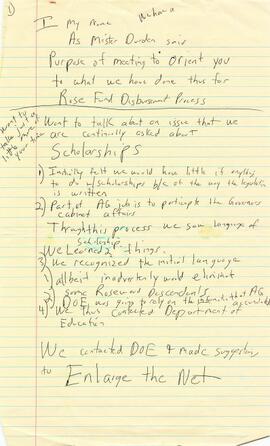 1)
I My name We have a
As Mister Durden said
Purpose of meeting to orient you
to what we have done thus far
Rose Fund Disbursement Process
Want to talk about an issue that we
are continually asked about
Want to
little
your time
Scholarships
1) Initially felt we would have little if anything
to do w/ scholarships b/c of the way the legislation
is written
2) Part of AG job is to participate the Governors
cabinet affairs
Through this process we saw language of
Scholarship
We Learned 2 things.
3) We recognized the initial language
1) albeit inadvertently would eliminate
2) Some Rosewood Descendents
3) DOE was going to rely on the information that AG accumulated
4) We thus contacted Department of
Education
We contacted DOE & made suggestions
to Enlarge the Net